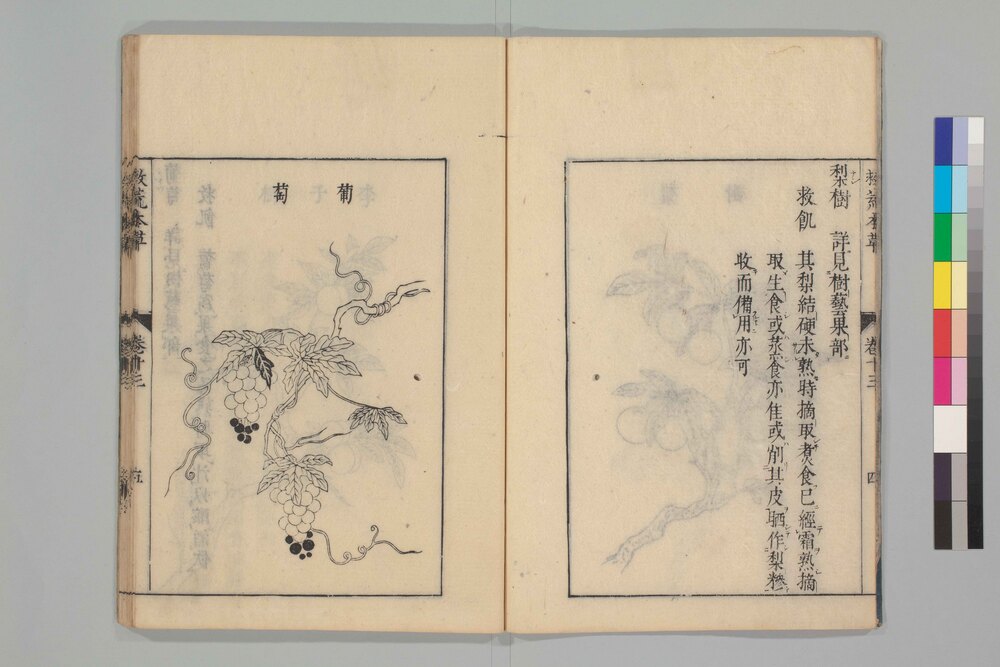 救荒本草 卷十三 四
梨樹 詳見樹藝果部
救飢
其梨結硬未熟時摘取煮食已經霜熟摘
取生食或蒸食亦佳或削其皮晒作梨糁
收而備用亦可
葡萄
救荒本草 卷十三 五